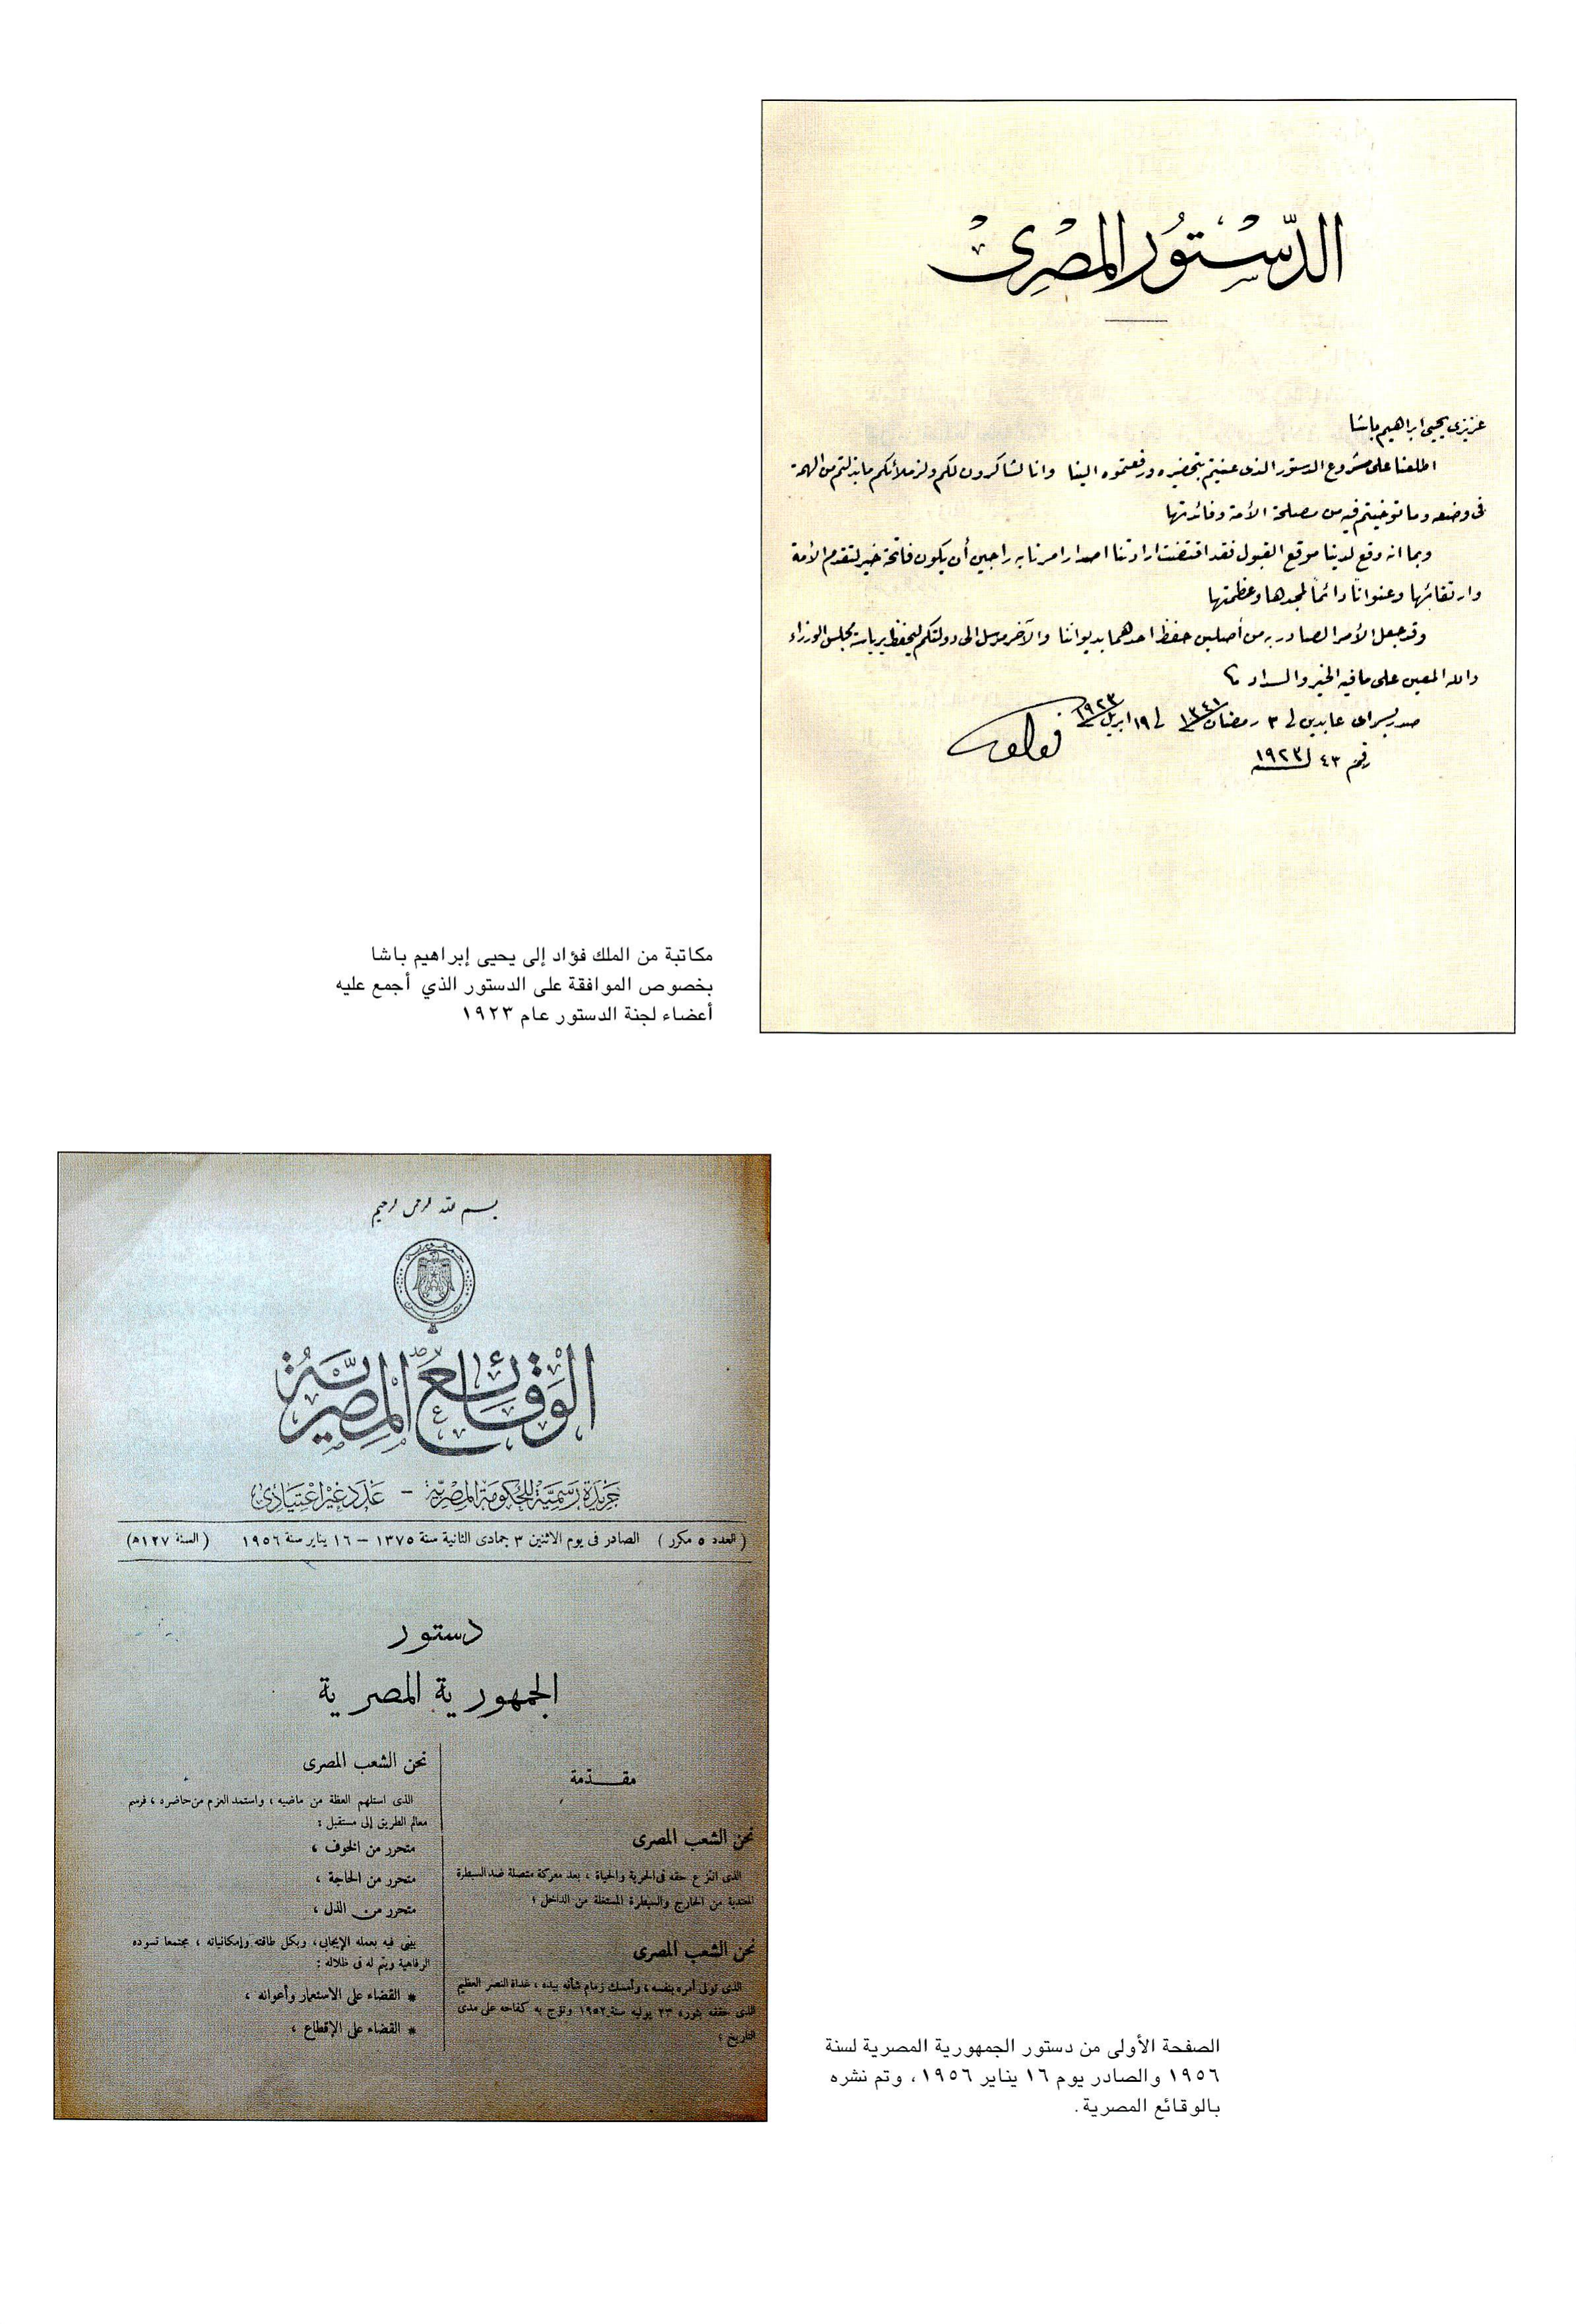 الدّسْتُور المصْرِىْ
عزيزى يحيى ابراهيم باشا
اطلعنا على مشروع الدستور الذى عنيتم بتحضيره ورفعتموه الينا وانا لشاكرون لكم ولزملائكم ما بذلتم من الهمة
فى وضعه وما توخيتم فيه من مصلحة الأمة وفائدتها
وبما انه وقع لدينا موقع القبول فقد اقتضت ارادتنا اصدار امرنا به راجين أن يكون فاتحة خير لتقدم الأمة
وارتقائها وعنواناً دائماً لمجدها وعظمتها
وقد جعل الأمر الصادر به من أصلين حفظ احدهما بديواننا والآخر مرسل الى دولتكم ليحفظ برياسة مجلس الوزراء
والله المعين على ما فيه الخير والسداد
صدر بسراى عابدين فى ٣ رمضان سنة ١٣٤١ فى ١٩ ابريل سنة ١٩٢٣
فؤاد
رقم ٤٣ لسنة ١٩٢٣
مكاتبة من الملك فؤاد إلى يحيى إبراهيم باشا
بخصوص الموافقة على الدستور الذي أجمع عليه
أعضاء لجنة الدستور عام ١٩٢٣
بسم الله الرحمن الرحيم
جمهورية مصر
الوَقائع المِصريَّة
جَريْدَة رَسْميَّة للحُكومَة المصْريَّة - عَدَد غيْر اعْتيَادِىّ
( العدد ٥ مكرر ) الصادر فى يوم الاثنين ٣ جمادى الثانية سنة ١٣٧٥ – ١٦ يناير سنة ١٩٥٦ ( السنة ١٢٧ﻫ)
دستور
الجمهورية المصرية
مقـــدّمة
نحن الشعب المصرى
الذى انتزع حقه فى الحرية والحياة ، بعد معركة متصلة ضد السيطرة
المعتدية من الخارج والسيطرة المستغلة من الداخل ؛
نحن الشعب المصرى
الذى تولى أمره بنفسه ، وأمسك زمام شأنه بيده ، غداة النصر العظيم
الذى حققه بثورة ٢٣ يوليه سنة ١٩٥٢ وتوّج به كفاحه على مدى
التاريخ ؛
نحن الشعب المصرى
الذى استلهم العظة من ماضيه ، واستمد العزم من حاضره ، فرسم
معالم الطريق إلى مستقبل :
متحرر من الخوف ،
متحرر من الحاجة ،
متحرر من الذل ،
يبنى فيه بعمله الإيجابى ، وبكل طاقته وإمكانياته ، مجتمعا تسوده
الرفاهية ويتم له فى ظلاله :
* القضاء على الاستعمار وأعوانه ،
* القضاء على الإقطاع ،
الصفحة الأولى من دستور الجمهورية المصرية لسنة
١٩٥٦ والصادر يوم ١٦ يناير ١٩٥٦، وتم نشره
بالوقائع المصرية.